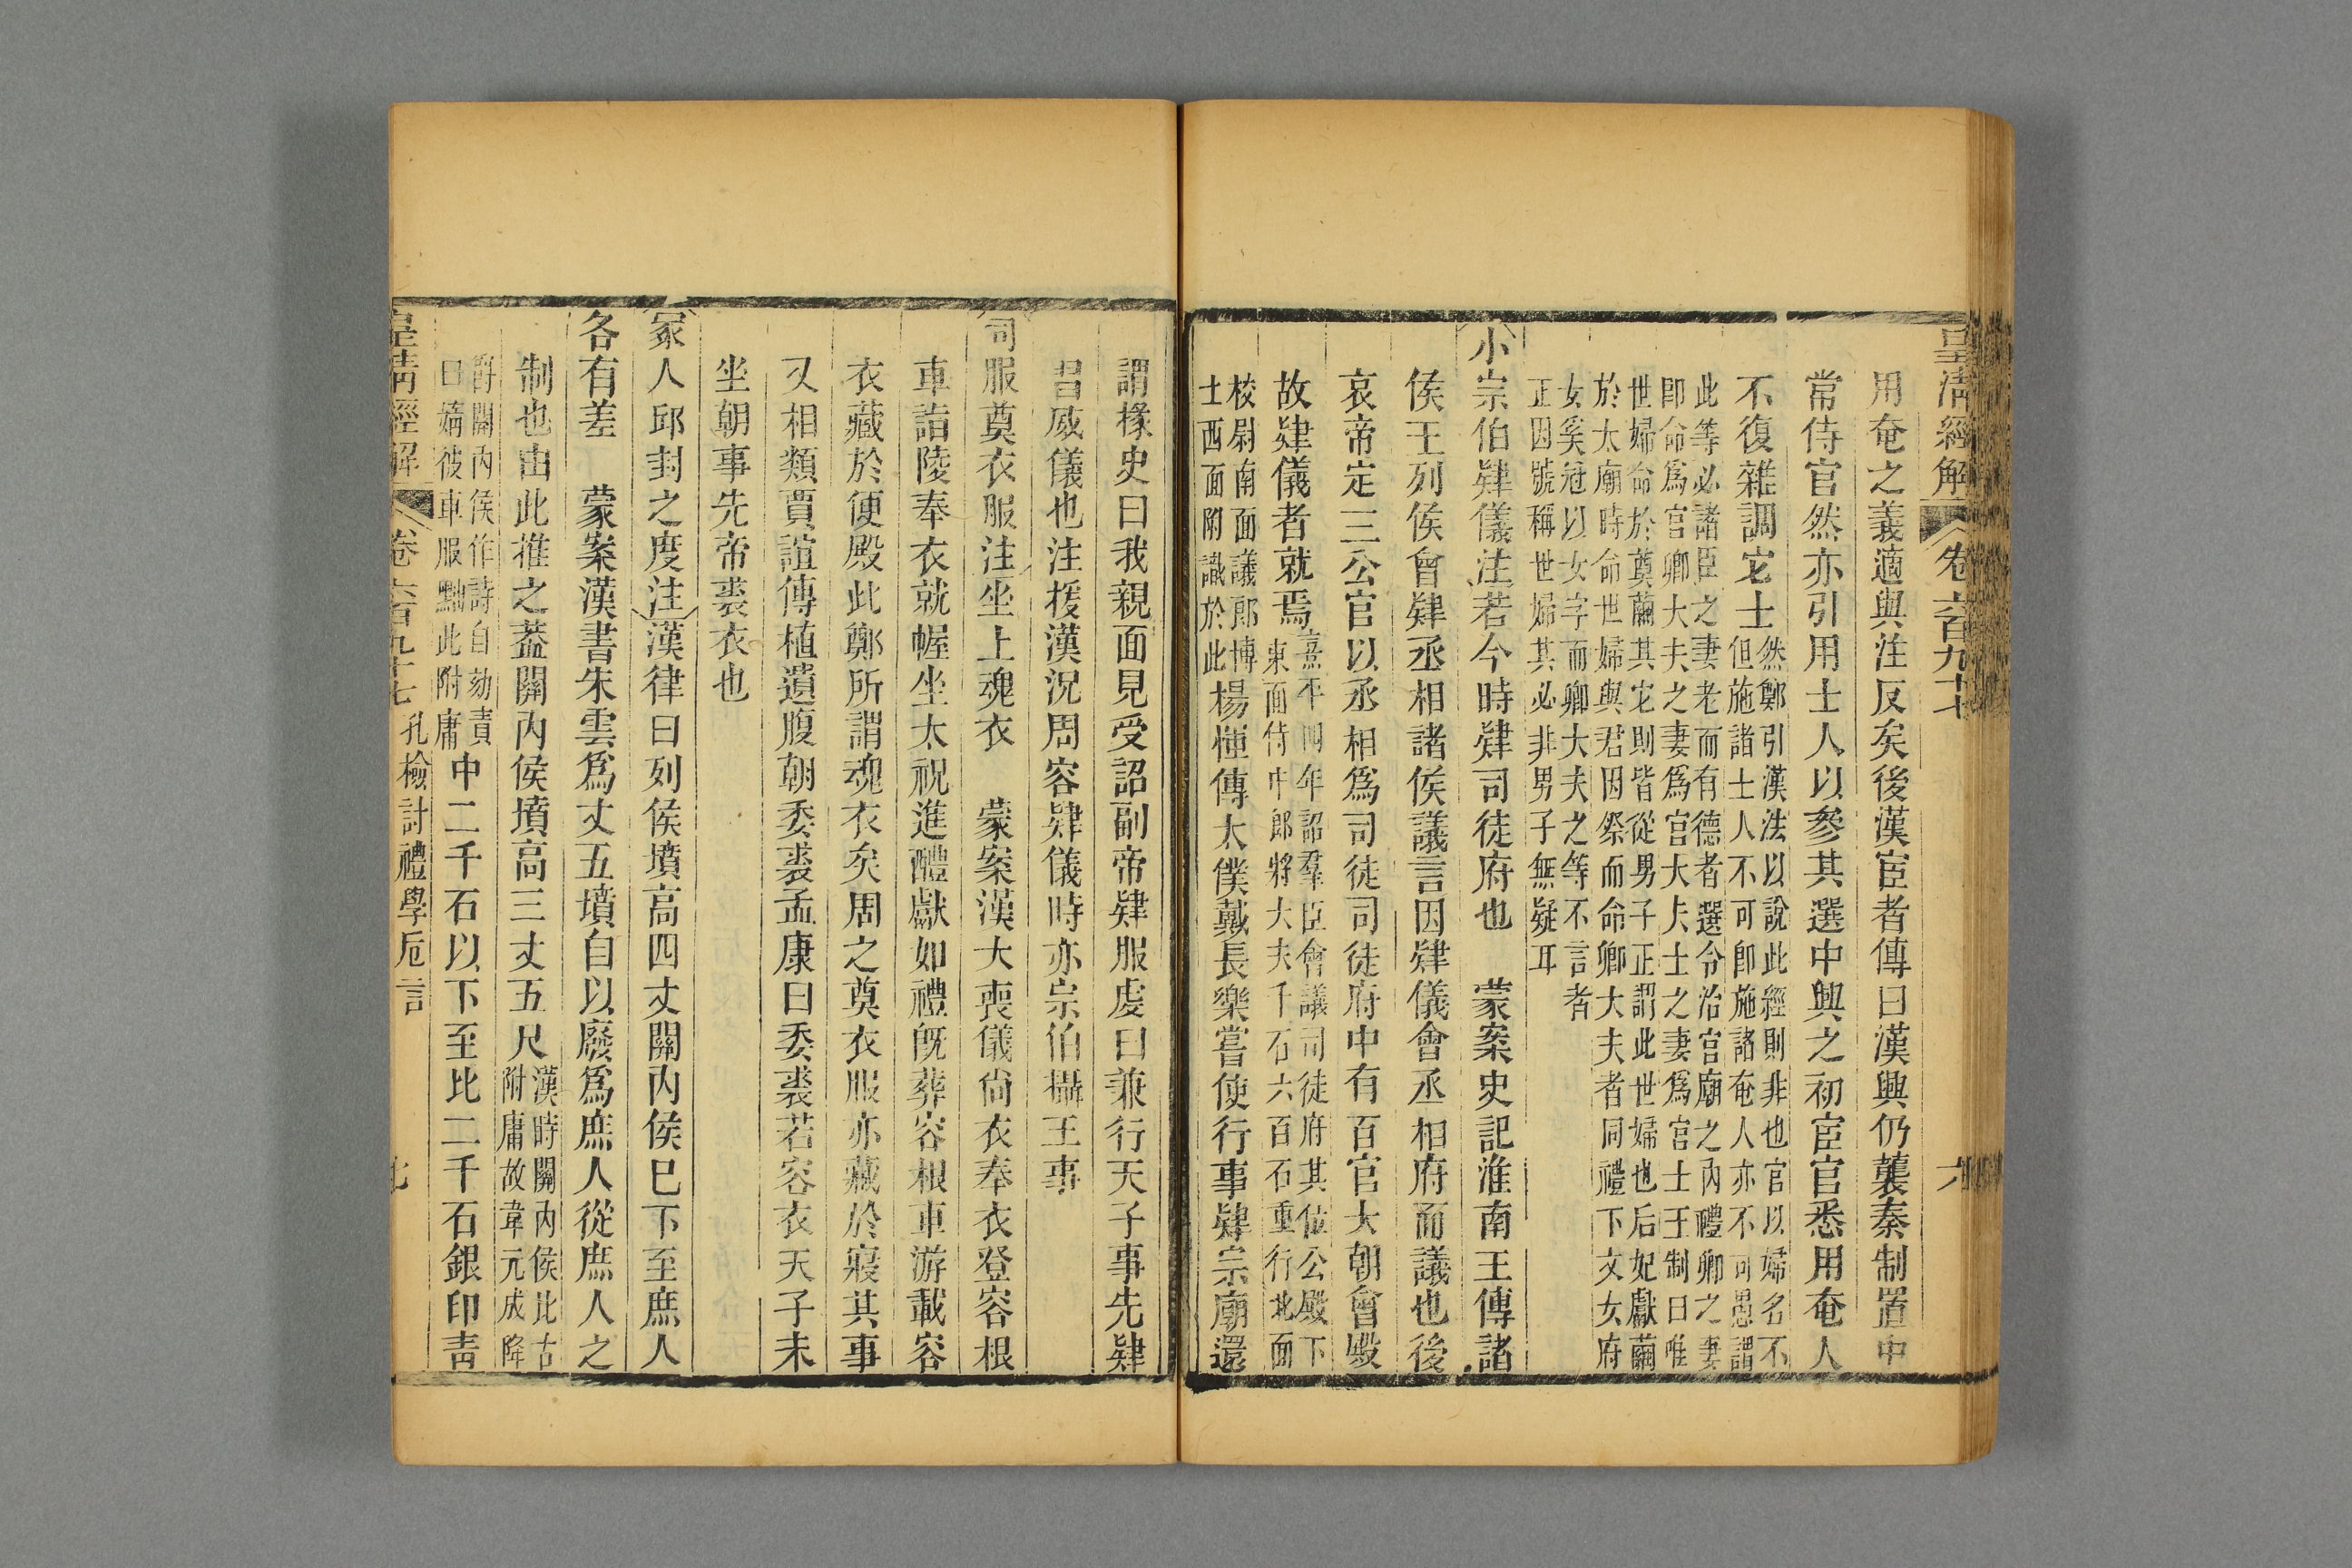 皇清經解 卷六百九十七 六
用奄之義適與注反矣後漢宦者傳曰漢興仍襲秦制置中
常侍官然亦引用士人以參其選中興之初宦官悉用奄人
不復雜調它士然鄭引漢法以說此經則非也官以婦名不
但施諸士人不可卽施諸奄人亦不可愚謂
此等必諸臣之妻老而有德者選令治宮廟之內禮卿之妻
卽命爲宮卿大夫之妻爲宮大夫士之妻爲宮士王制曰唯
世婦命於奠繭其它則皆從男子正謂此世婦也后妃獻繭
於太廟時命世婦與君因祭而命卿大夫者同禮下文女府
女奚冠以女字而卿大夫之等不言者
正因號稱世婦其必非男子無疑耳
小宗伯肄儀注若今時肄司徒府也 蒙案史記淮南王傳諸
侯王列侯會肄丞相諸侯議言因肄儀會丞相府而議也後
哀帝定三公官以丞相爲司徒司徒府中有百官大朝會殿
故肄儀者就焉熹平四年詔羣臣會議司徒府其位公殿下
東面侍中郎將大夫千石六百石重行北面
校尉南面議郎博
士西面附識於此楊惲傳太僕戴長樂嘗使行事肄宗廟還
謂掾史曰我親面見受詔副帝肄服虔曰兼行天子事先肄
習威儀也注援漢況周容肄儀時亦宗伯攝王事
司服奠衣服注坐上魂衣 蒙案漢大喪儀尙衣奉衣登容根
車詣陵奉衣就幄坐太祝進醴獻如禮旣葬容根車游載容
衣藏於便殿此鄭所謂魂衣矣周之奠衣服亦藏於寢其事
又相類賈誼傳植遺腹朝委裘孟康曰委裘若容衣天子未
坐朝事先帝裘衣也
冢人邱封之度注漢律曰列侯墳高四丈關內侯巳下至庶人
各有差 蒙案漢書朱雲爲丈五墳自以廢爲庶人從庶人之
制也由此推之葢關內侯墳高三丈五尺漢時關內侯比古
附庸故韋元成降
爵關內侯作詩自劾責
曰媠彼車服黜此附庸中二千石以下至比二千石銀印靑
皇清經解 卷六百九十七 孔檢討禮學卮言 七